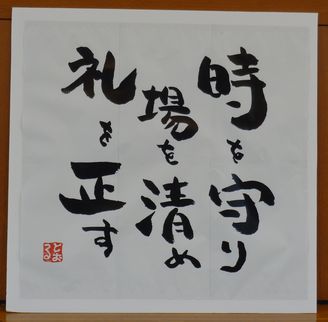 時を守り
場を清め
礼を正す
とお
くる